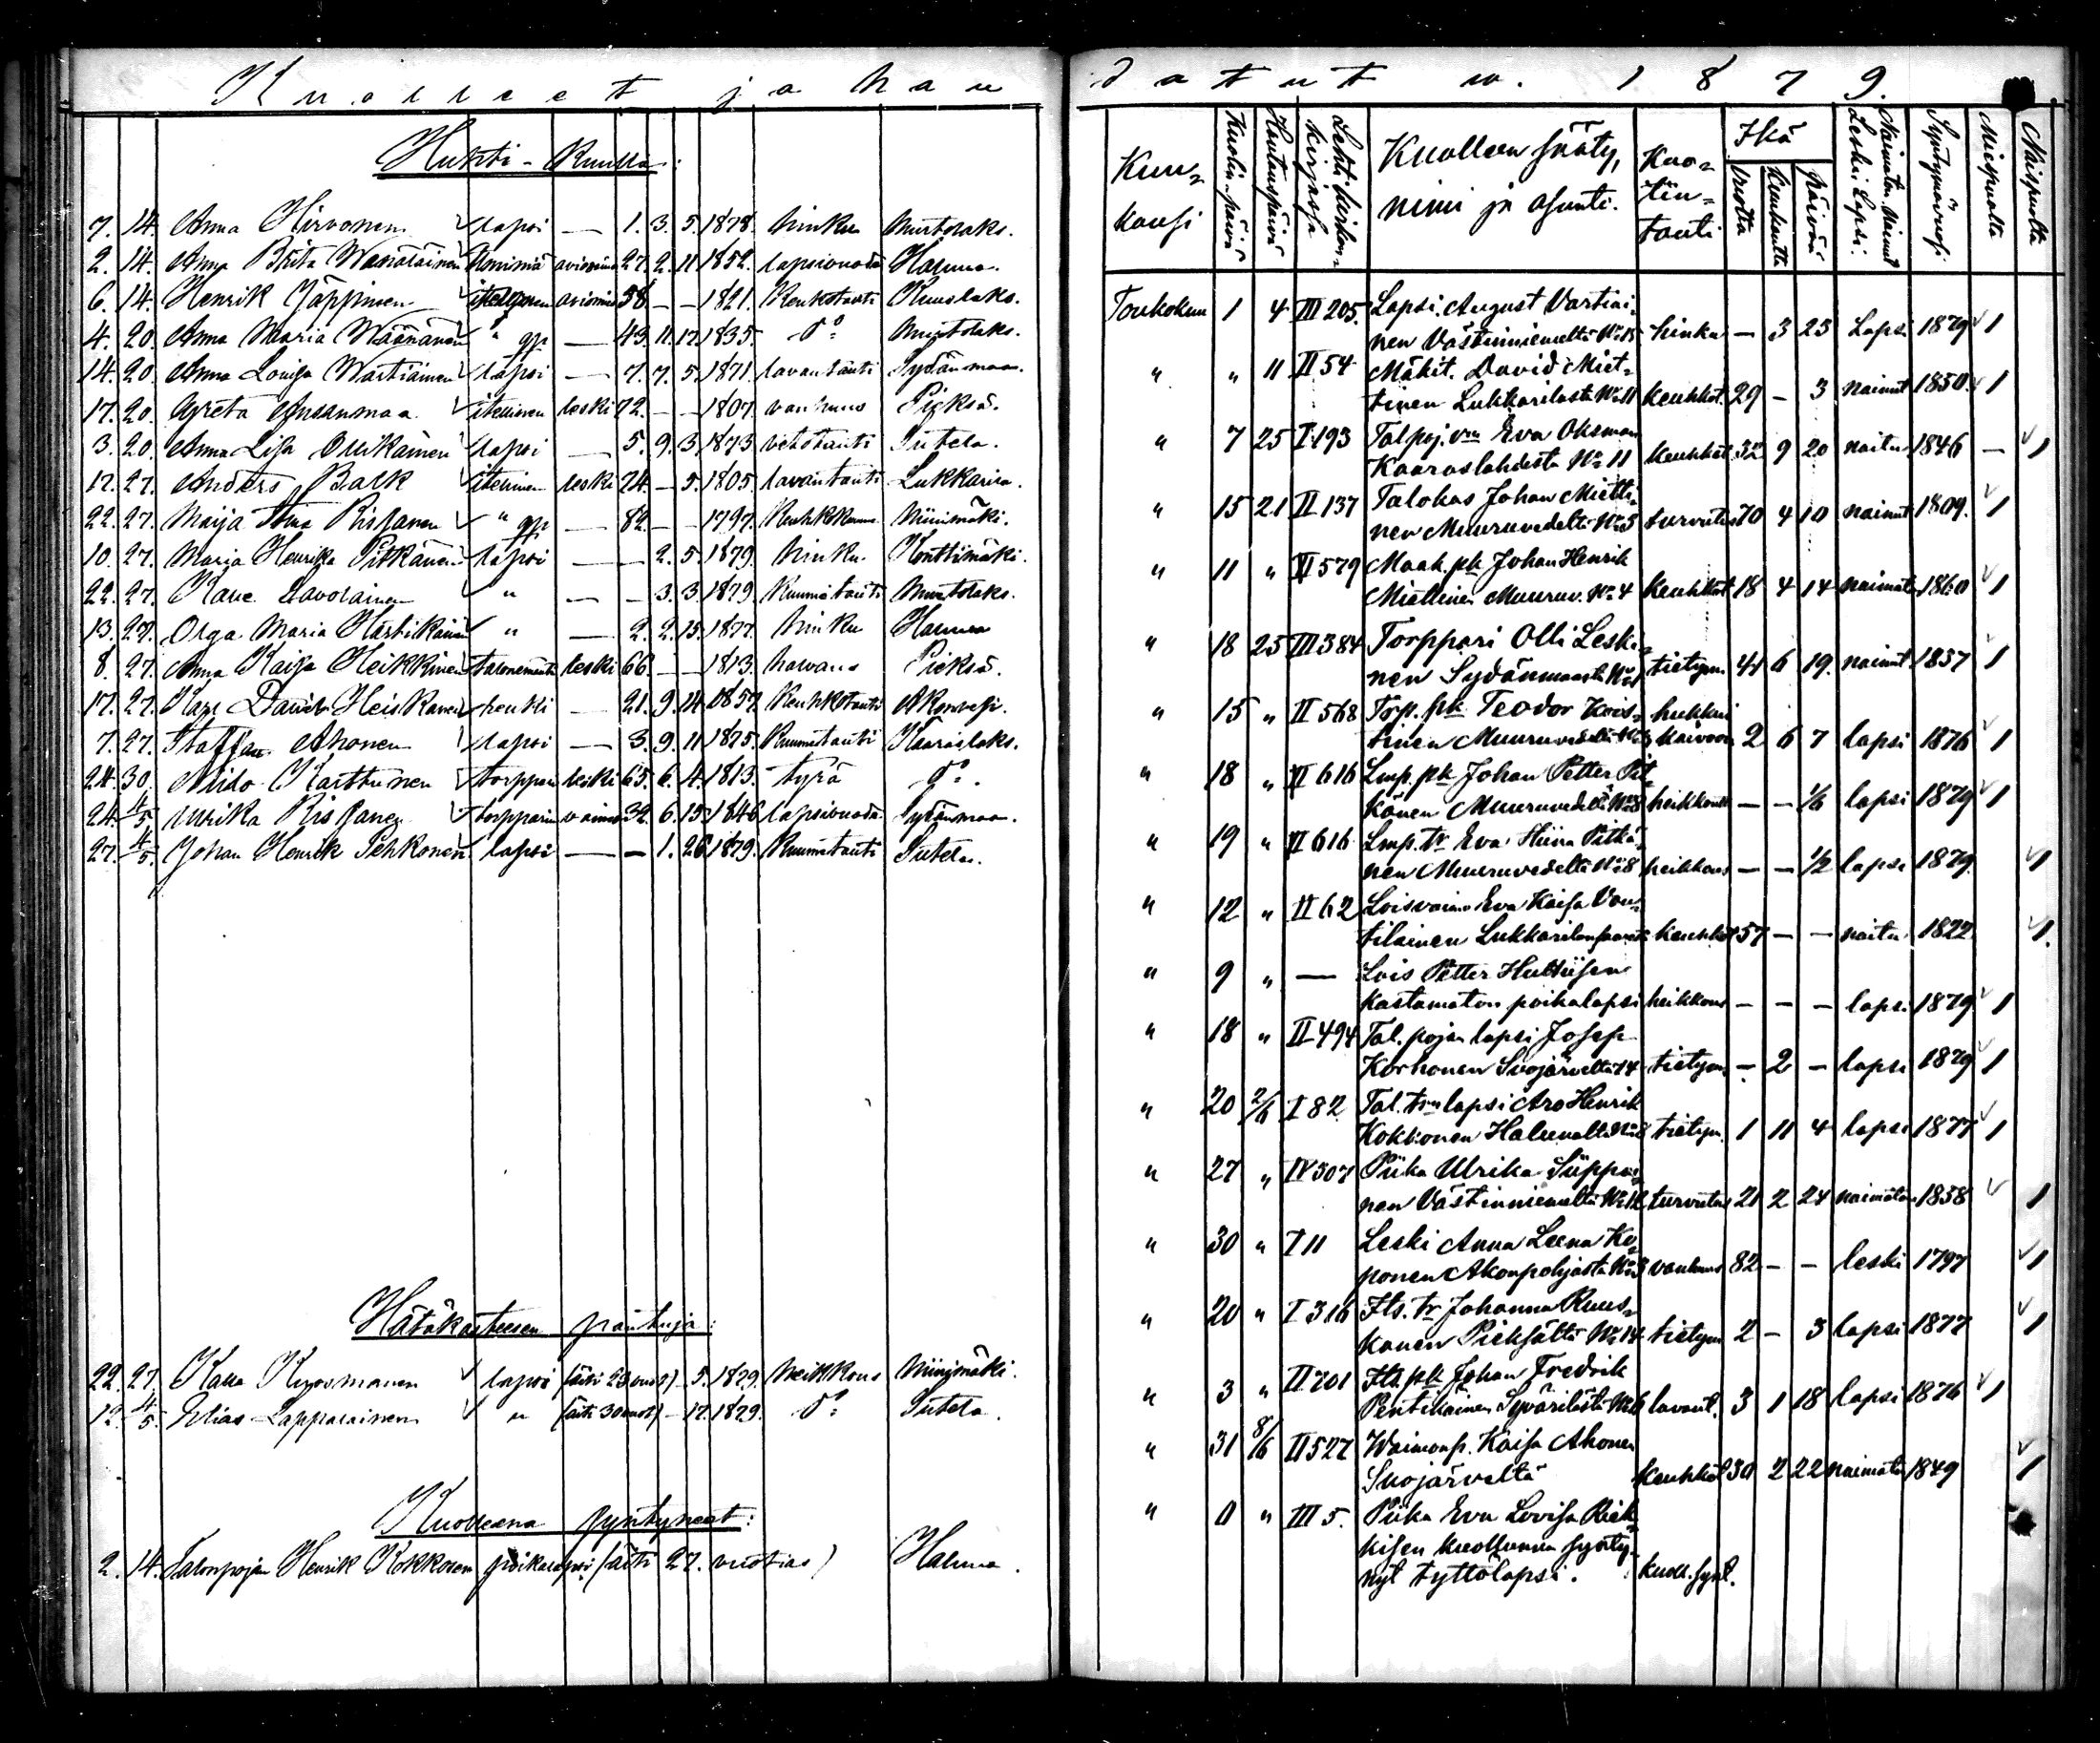 Kuolleet ja hau
Huhti-Kuulla:
7. 14. Anna Hirvonen lapsi — 1. 3. 5. 1878. hinku Mustolaks.
2. 14. Anna Brita Wänäläinen aviovaimo 27. 2. 11 1852. lapsivuode Haluna.
6. 14. Henrik Jäppinen itellinen aviomies 58 — — 1821. Keuhkotauti Kuuslaks.
4. 20. Anna Maria Väänänen " — 43. 11. 17. 1835. do Mustolaks.
14. 20. Anna Lovisa Wartiainen lapsi — 7. 7. 5. 1871. lavantauti Sydänmaa.
17. 20. Greta Ansanmaa itellinen leski 72. — — 1807. vanhuus Pieksä.
3. 20. Anna Lisa Ollikainen lapsi — 5. 9. 3. 1873 vetotauti Sutela.
17. 27. Anders Balk itellinen leski 74. — 5. 1805. lavantauti Lukkarila.
22. 27. Maija Stina Rissanen " — 82. — — 1797. Niinimäki.
10. 27. Maria Henrika Pitkänen lapsi — — 2. 5. 1879. hinku Konttimäki.
22. 27. Kalle Savolainen " — — 3. 3. 1879. Kuumetauti Mustolaks.
13. 27. Olga Maria Hartikainen " — 2. 2. 15. 1877. hinku Haluna
8. 27. Anna Kaisa Heikkinen talonemäntä leski 66. — — 1813. halvaus Pieksä.
17. 27. Karl David Heiskanen renki — 21. 9. 14 1857 Keuhkotauti Akonvesi.
7. 27. Staffan Ahonen lapsi — 3. 9. 11 1875. Kuumetauti Kaaraslaks.
24. 30. Karttunen torppari leski 65. 6. 4. 1813. tyrä do.
24. 4/5 Ulrika Rissanen torpparin vaimo 32. 6. 15. 1846 lapsivuode Sydänmaa.
27. 4/5. Johan Henrik Pehkonen lapsi — — 1. 26 1879. Kuumetauti Sutela.
Hätäkasteesen
22. 27. Kalle lapsi (äiti 23 vuot) — 5. 1879. heikkous Niinimäki.
12. 4/5. Elias Lappalainen " (äiti 30 vuot) — 17. 1879. do Sutela.
Kuolleena syntyneet:
2. 14. Talonpojan Henrik Kokkosen poikalapsi (äiti 27. vuotias) Haluna.
datut w. 1879.
Kuu-
kausi
Kuolinpäivä
Hautauspäivä
Lehti kirkon-
kirjassa
Kuolleen sääty,
nimi ja asunto.
Kuo-
lin-
tauti
Ikä
vuotta
kuukautta
päivää
Naimaton Nainut
Leski Lapsi.
Syntymävuosi
Miespuolta
Naispuolta
Toukokuu 1 4 III 205. Lapsi August Vartiai-
nen Västinniemeltä No 15 hinku — 3 23 lapsi 1879 1
" " 11 II 54 Mäkit. David Miet-
tinen Lukkarilasta No 11 keuhkot. 29 — 3 nainut 1850. 1
" 7 25 I 193 Talpoj. vm Eva Oksman
Kaaraslahdesta No 11 keuhkot. 32 9 20 naitu 1846 — 1
" 15 21 II 137 Talokas Johan Mietti-
nen Muuruvedeltä No 5 turvotus 70 4 10 nainut 1809. 1
" 11 " VI 579 Maak. pk Johan Henrik
Miettinen Muuruv. No 4 keuhkot 18 4 14 naimaton 1860 1
" 18 25 III 384 Torppari Olli Leski-
nen Sydänmaasta No 1 tietym. 41 6 19. nainut 1837 1
" 15 " II 568 Torp. pk Teodor Kois-
tinen Muuruvedeltä No 3 hukkui kaivoon 2 6 7 lapsi 1876 1
" 18 " VI 616 Lmp. pk Johan Petter Pit-
känen Muuruvedeltä No 8 heikkous — — 1/6 lapsi 1879 1
" 19 " VI 616 Lmp. tr Eva Stiina Pitkä-
nen Muuruvedeltä No 8 heikkous — — 1/2 lapsi 1879. 1
" 12 " II 62 Loisvaimo Eva Kaisa Vou-
tilainen keuhkot 57 — — naitu 1822 1.
" 9 " — Lois Petter
kastamaton poikalapsi heikkous — — — lapsi 1879 1
" 18 " II 494 Tal. pojan lapsi Josep
Korhonen Suojärveltä 14 tietym. — 2 — lapsi 1879 1
" 20 2/6 I 82 Tal. lapsi Aro Henrik
Kokkonen Halunalta No 8 tietym. 1 11 4 lapsi 1877 1
" 27 " IV 507 Piika Ulrika Siippai-
nen Västinniemeltä No 12 turvotus 21 2 24 naimaton 1858 1
" 30 " I 11 Leski Anna Leena Ko-
ponen Akonpohjasta No 3 vanhuus 82 — — leski 1797 1
" 20 " I 316 Its. tr Johanna Ruus-
kanen Pieksältä No 14 tietym. 2 — 3 lapsi 1877 1
" 3 " II 701 Its. pk Johan Fredrik
Pentikäinen Syvärilästä No 6 lavant. 3 1 18 lapsi 1876 1
" 31 8/6 II 527 Waimonp. Kaisa Ahonen
Suojärveltä keuhkot 30 2 22 naimaton 1849 1
" 11 " III 5. Piika Eva Lovisa Riek-
kisen kuolleena synty-
nyt tyttölapsi. kuoll. synt.